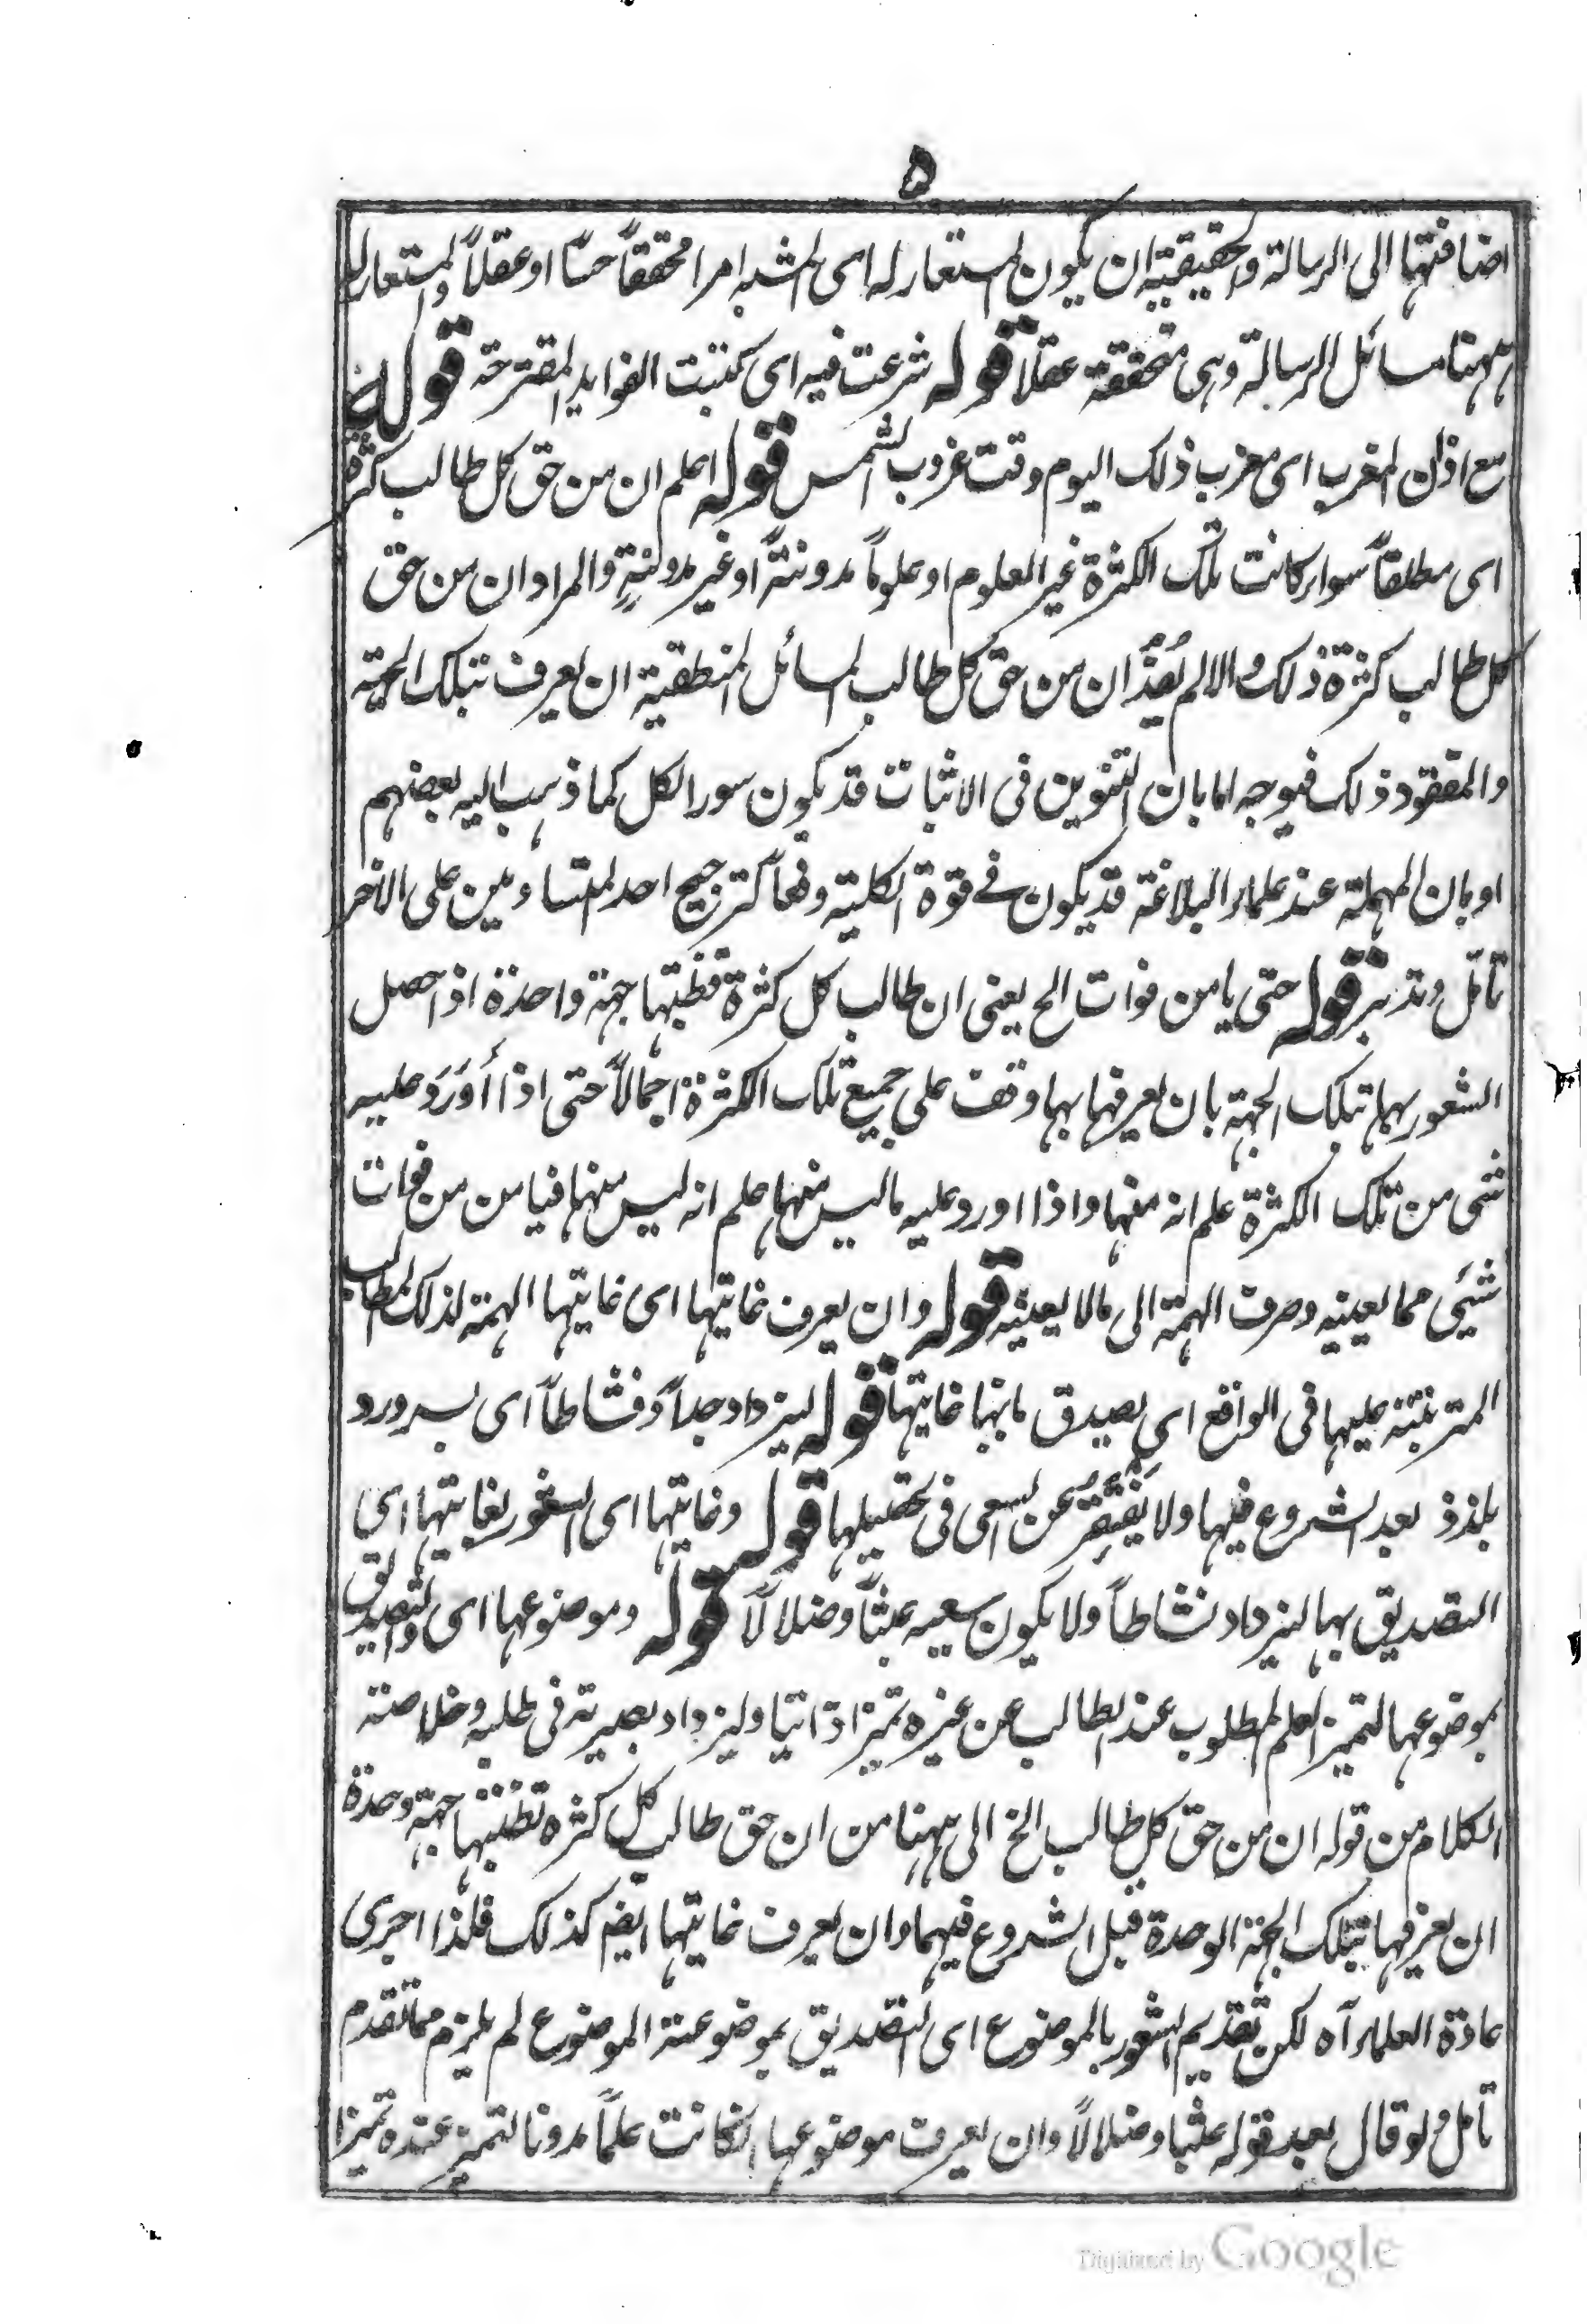 ۵
اضافتها الى الرسالة والحقيقية ان يكون المستعار له اى المشبه امرا محققاً حسّاً او عقلاً والمستعار له
ههنا مسائل الرسالة وهى متحققة عقلا قوله شرعت فيه اى كتبت الفوايد المقترحة قوله
مع اذان المغرب اى مغرب ذلك اليوم وقت غروب الشمس قوله اعلم ان من حق كل طالب كثرة
اى مطلقاً سواء كانت تلك الكثرة غير العلوم او علوماً مدونةً او غير مدونةٍ والمراد ان من حق
كل طالب كثرة ذلك والا لم يُفِدْ ان من حق كل طالب المسائل المنطقية ان يعرف بتلك الجهة
والمقصود ذلك فيوجه اما بان التنوين فى الاثبات قد يكون سور الكل كما ذهب اليه بعضهم
او بان المهملة عند علماء البلاغة قد يكون فے قوة الكلية دفعاً لترجيح احد المتساويين على الاخر
تأمل وتدبر قوله حتى يامن فوات الخ يعنى ان طالب كل كثرة تضبطها جهة واحدة اذا حصل
الشعور بها بتلك الجهة بان يعرفها بها وقف على جميع تلك الكثرة اجمالاً حتى اذا أَوْرَدَ عليه
شى من تلك الكثرة علم انه منها واذا اورد عليه ما ليس منها علم انه ليس منها فيامن من فوات
شيئى مما يعينه وصرف الهمة الى ما لا يعينه قوله وان يعرف غايتها اى غايتها المهمة لذلك الطالب
المترتبة عليها فى الواقع اى يصدق بانها غايتها قوله ليزداد جداً ونشاطاً اى بسرور و
بلذذ بعد الشروع فيها ولا يَفْتَقِرُ عن السعى فى تحصيلها قوله وغايتها اى الشعور بغايتها اى
التصديق بها ليزداد نشاطاً ولا يكون سعيه عبثاً وضلالاً قوله وموضوعها اى والتصديق
بموضوعها لتميز العلم المطلوب عند الطالب عن غيره تميزا ذاتيا وليزداد بصيرته فى طلبه وخلاصة
الكلام من قوله ان من حق كل طالب الخ الى ههنا من ان حق طالب كل كثرة تضبطها جهة وحدة
ان يعرفها بتلك الجهة الوحدة قبل الشروع فيها وان يعرف غايتها ايضم كذلك فلذا اجرى
عادة العلماء آه لكن تقديم الشعور بالموضوع اى التصديق بموضوعية الموضوع لم يلزم مما تقدم
تأمل ولو قال بعد قوله عبثا وضلالاً وان يعرف موضوعها ان كانت علماً مدونا لتميز عنده تميزا
Digitized by Google